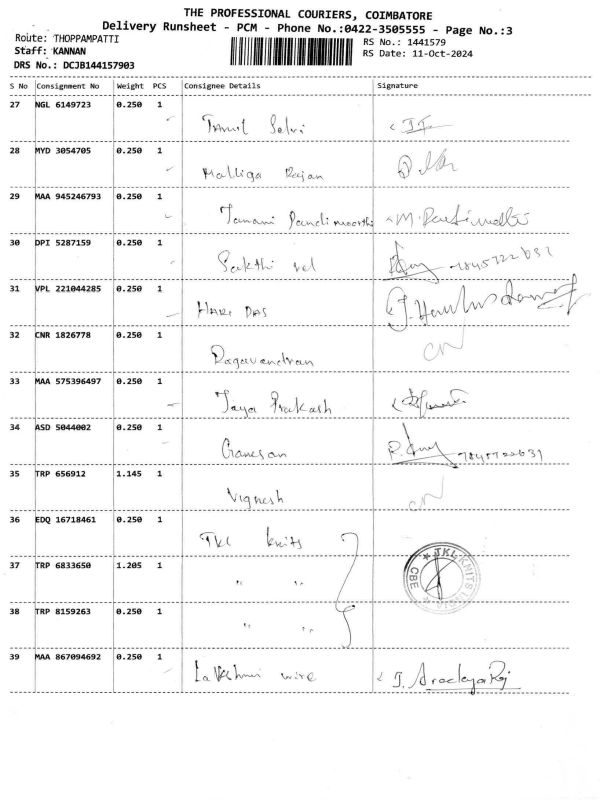 THE PROFESSIONAL COURIERS, COIMBATORE
Delivery Runsheet - PCM - Phone No.:0422-3505555 - Page No.:3
Route: THOPPAMPATTI
RS No.: 1441579
Staff: KANNAN
RS Date: 11-Oct-2024
DRS No.: DCJB144157903
S No Consignment No Weight PCS Consignee Details Signature
27 NGL 6149723 0.250 1
Tamil Selvi
28 MYD 3054705 0.250 1
Malliga Rajan
29 MAA 945246793 0.250 1
30 DPI 5287159 0.250 1
Sakthi vel
31 VPL 221044285 0.250 1
HARI DAS
32 CNR 1826778 0.250 1
Ragavendran CN
33 MAA 575396497 0.250 1
Jaya Prakash
34 ASD 5044002 0.250 1
Ganesan
35 TRP 656912 1.145 1
Vignesh CN
36 EDQ 16718461 0.250 1
JKL knits
37 TRP 6833650 1.205 1
" "
JKL KNITS INDIA
CBE
38 TRP 8159263 0.250 1
" "
39 MAA 867094692 0.250 1
Lakshmi wire